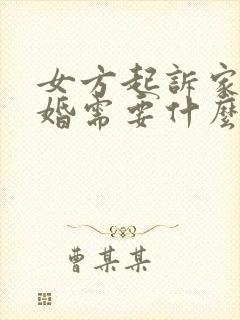 女方起訴家
婚需要什麼
曹某某